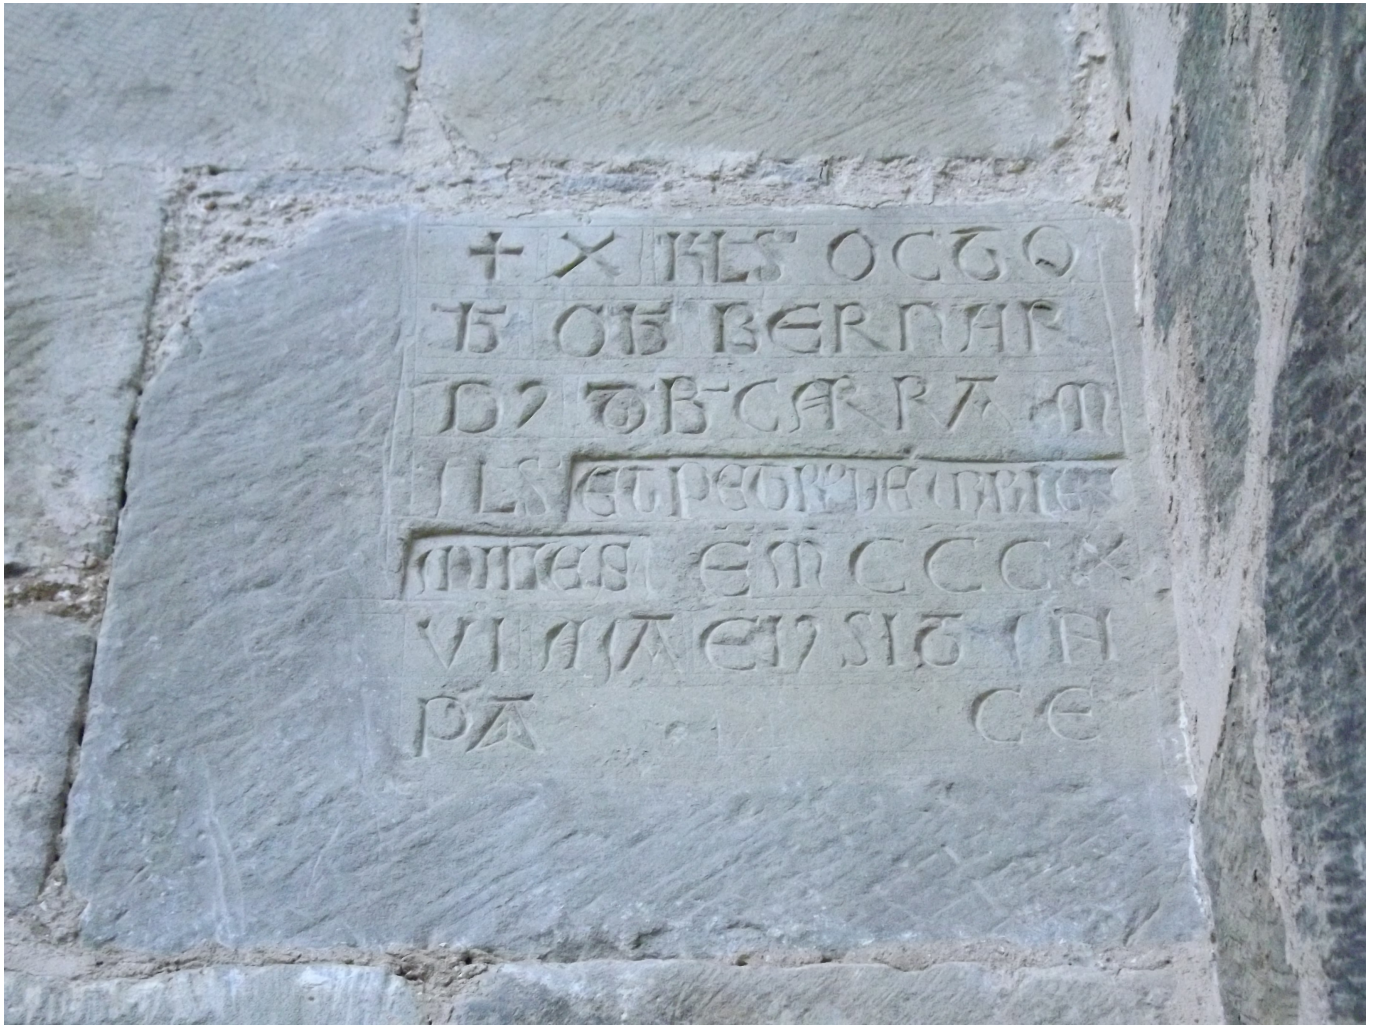 + X KLS OCTO
B OB BERNAR
D' DE CERRA M
ILS ET PETRO DE
MILES E M CCC X
VI A I A EIVS SIT IN
PA CE